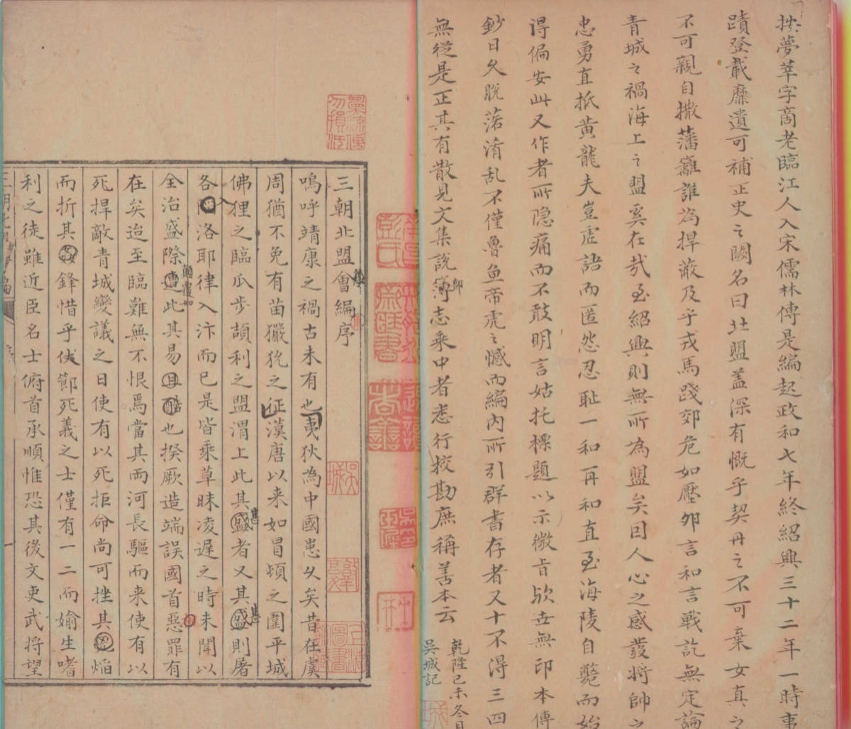 夢莘字商老臨江人入宋儒林傳是編起政和七年終紹興三十二年一時事
蹟登載靡遺可補正史之闕名曰北盟蓋深有慨乎契丹之不可棄女真之
不可親自撤藩籬誰為捍蔽及乎戎馬踐郊危如壓卵言和言戰訖無定論
青城之禍海上之盟奚在哉至紹興則無所為盟矣因人心之感發將帥之
忠勇直抵黃龍夫豈虛語而匿怨忍耻一和再和直至海陵自斃而始
得偏安此又作者所隱痛而不敢明言姑托標題以示微旨欤世無印本傳
鈔日久脫落淆亂不僅魯魚帝虎之憾而編內所引群書存者又十不得三四
無從是正其有散見文集說部簿志乘中者悉行校勘庶稱善本云
乾隆己未冬日
吳城記
三朝北盟會編序
嗚呼靖康之禍古未有也夷狄為中國患久矣昔在虞
周猶不免有苗玁狁之征漢唐以来如冒頓之圍平城
佛狸之臨瓜步頡利之盟渭上此其盛者又其盛則屠
各洛耶律入汴而已是皆乘草昧凌遲之時未聞以
全治盛際遭此其易且酷也揆厥造端誤國首惡罪有
在矣迨至臨難無不恨焉當其兩河長驅而来使有以
死捍敵青城變議之日使有以死拒命尚可挫其焰
而折其鋒惜乎伏節死義之士僅有一二而媮生嗜
利之徒雖近臣名士俯首承順惟恐其後文吏武將望